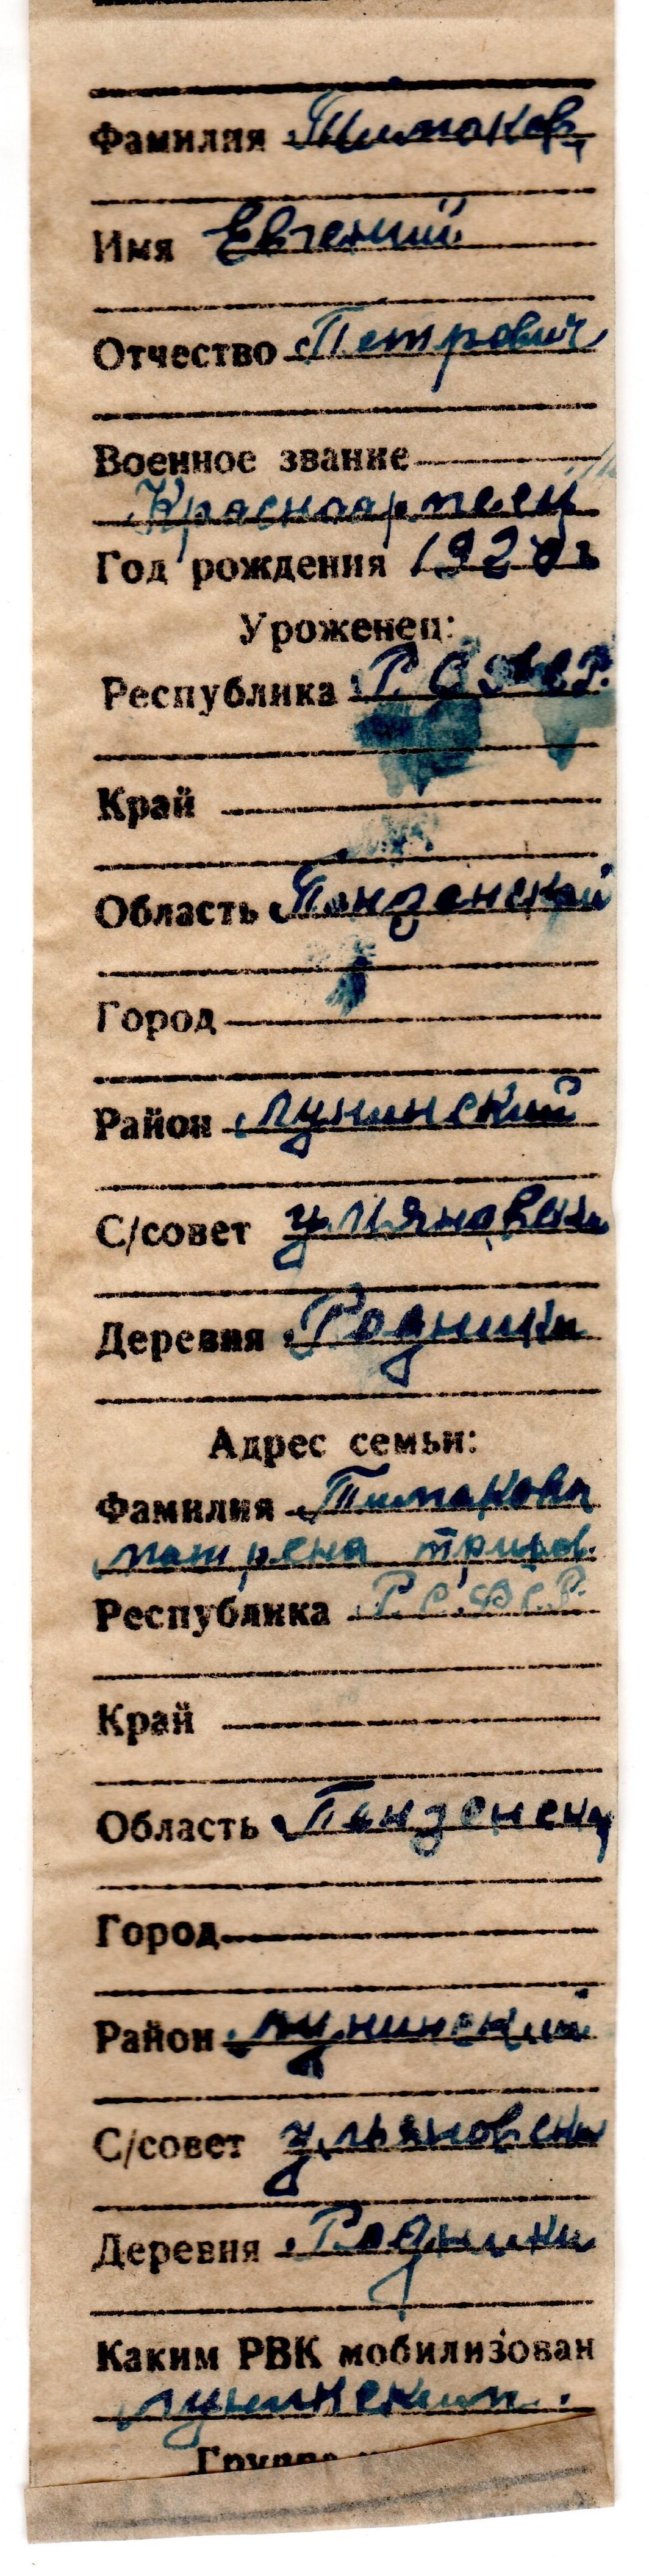 Фамилия Тимаков
Имя Евгений
Отчество Петрович
Военное звание
Красноармеец
Год рождения 192
Уроженец:
Республика Р.С.Ф.С.Р.
Край
Область Пензенской
Город
Район Лунинский
С/совет улияновски
Деревня Родники
Адрес семьи:
Фамилия Тимакова
матрена
Республика Р.С.Ф.С.Р.
Край
Область Пензенск
Город
Район Лунинский
С/совет ульяновски
Деревня Родники
Каким РВК мобилизован
Лунинским.
Группа